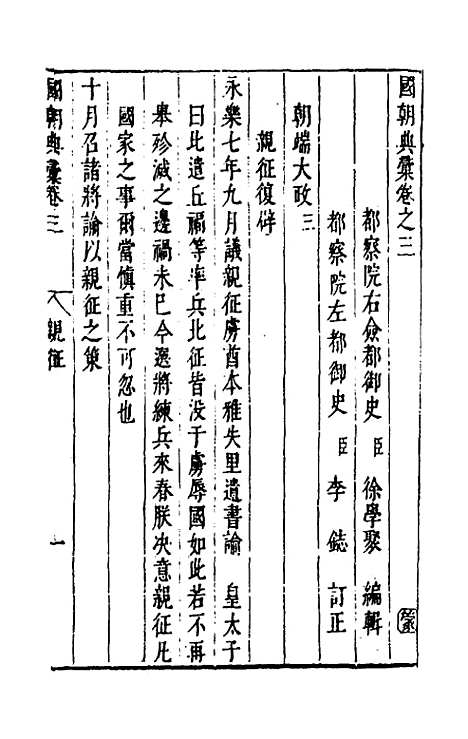 國朝典彙卷之三
都察院右僉都御史 臣 徐學聚 編輯
都察院左都御史 臣 李鋕 訂正
朝端大政 三
親征復辟
永樂七年九月議親征虜酋本雅失里遺書諭 皇太子
曰此遣丘福等率兵北征皆没于虜辱國如此若不再
舉殄滅之邊禍未已今選將練兵來春朕决意親征凡
國家之事爾當慎重不可忽也
十月召諸將諭以親征之策
國朝典彙卷三 親征 一